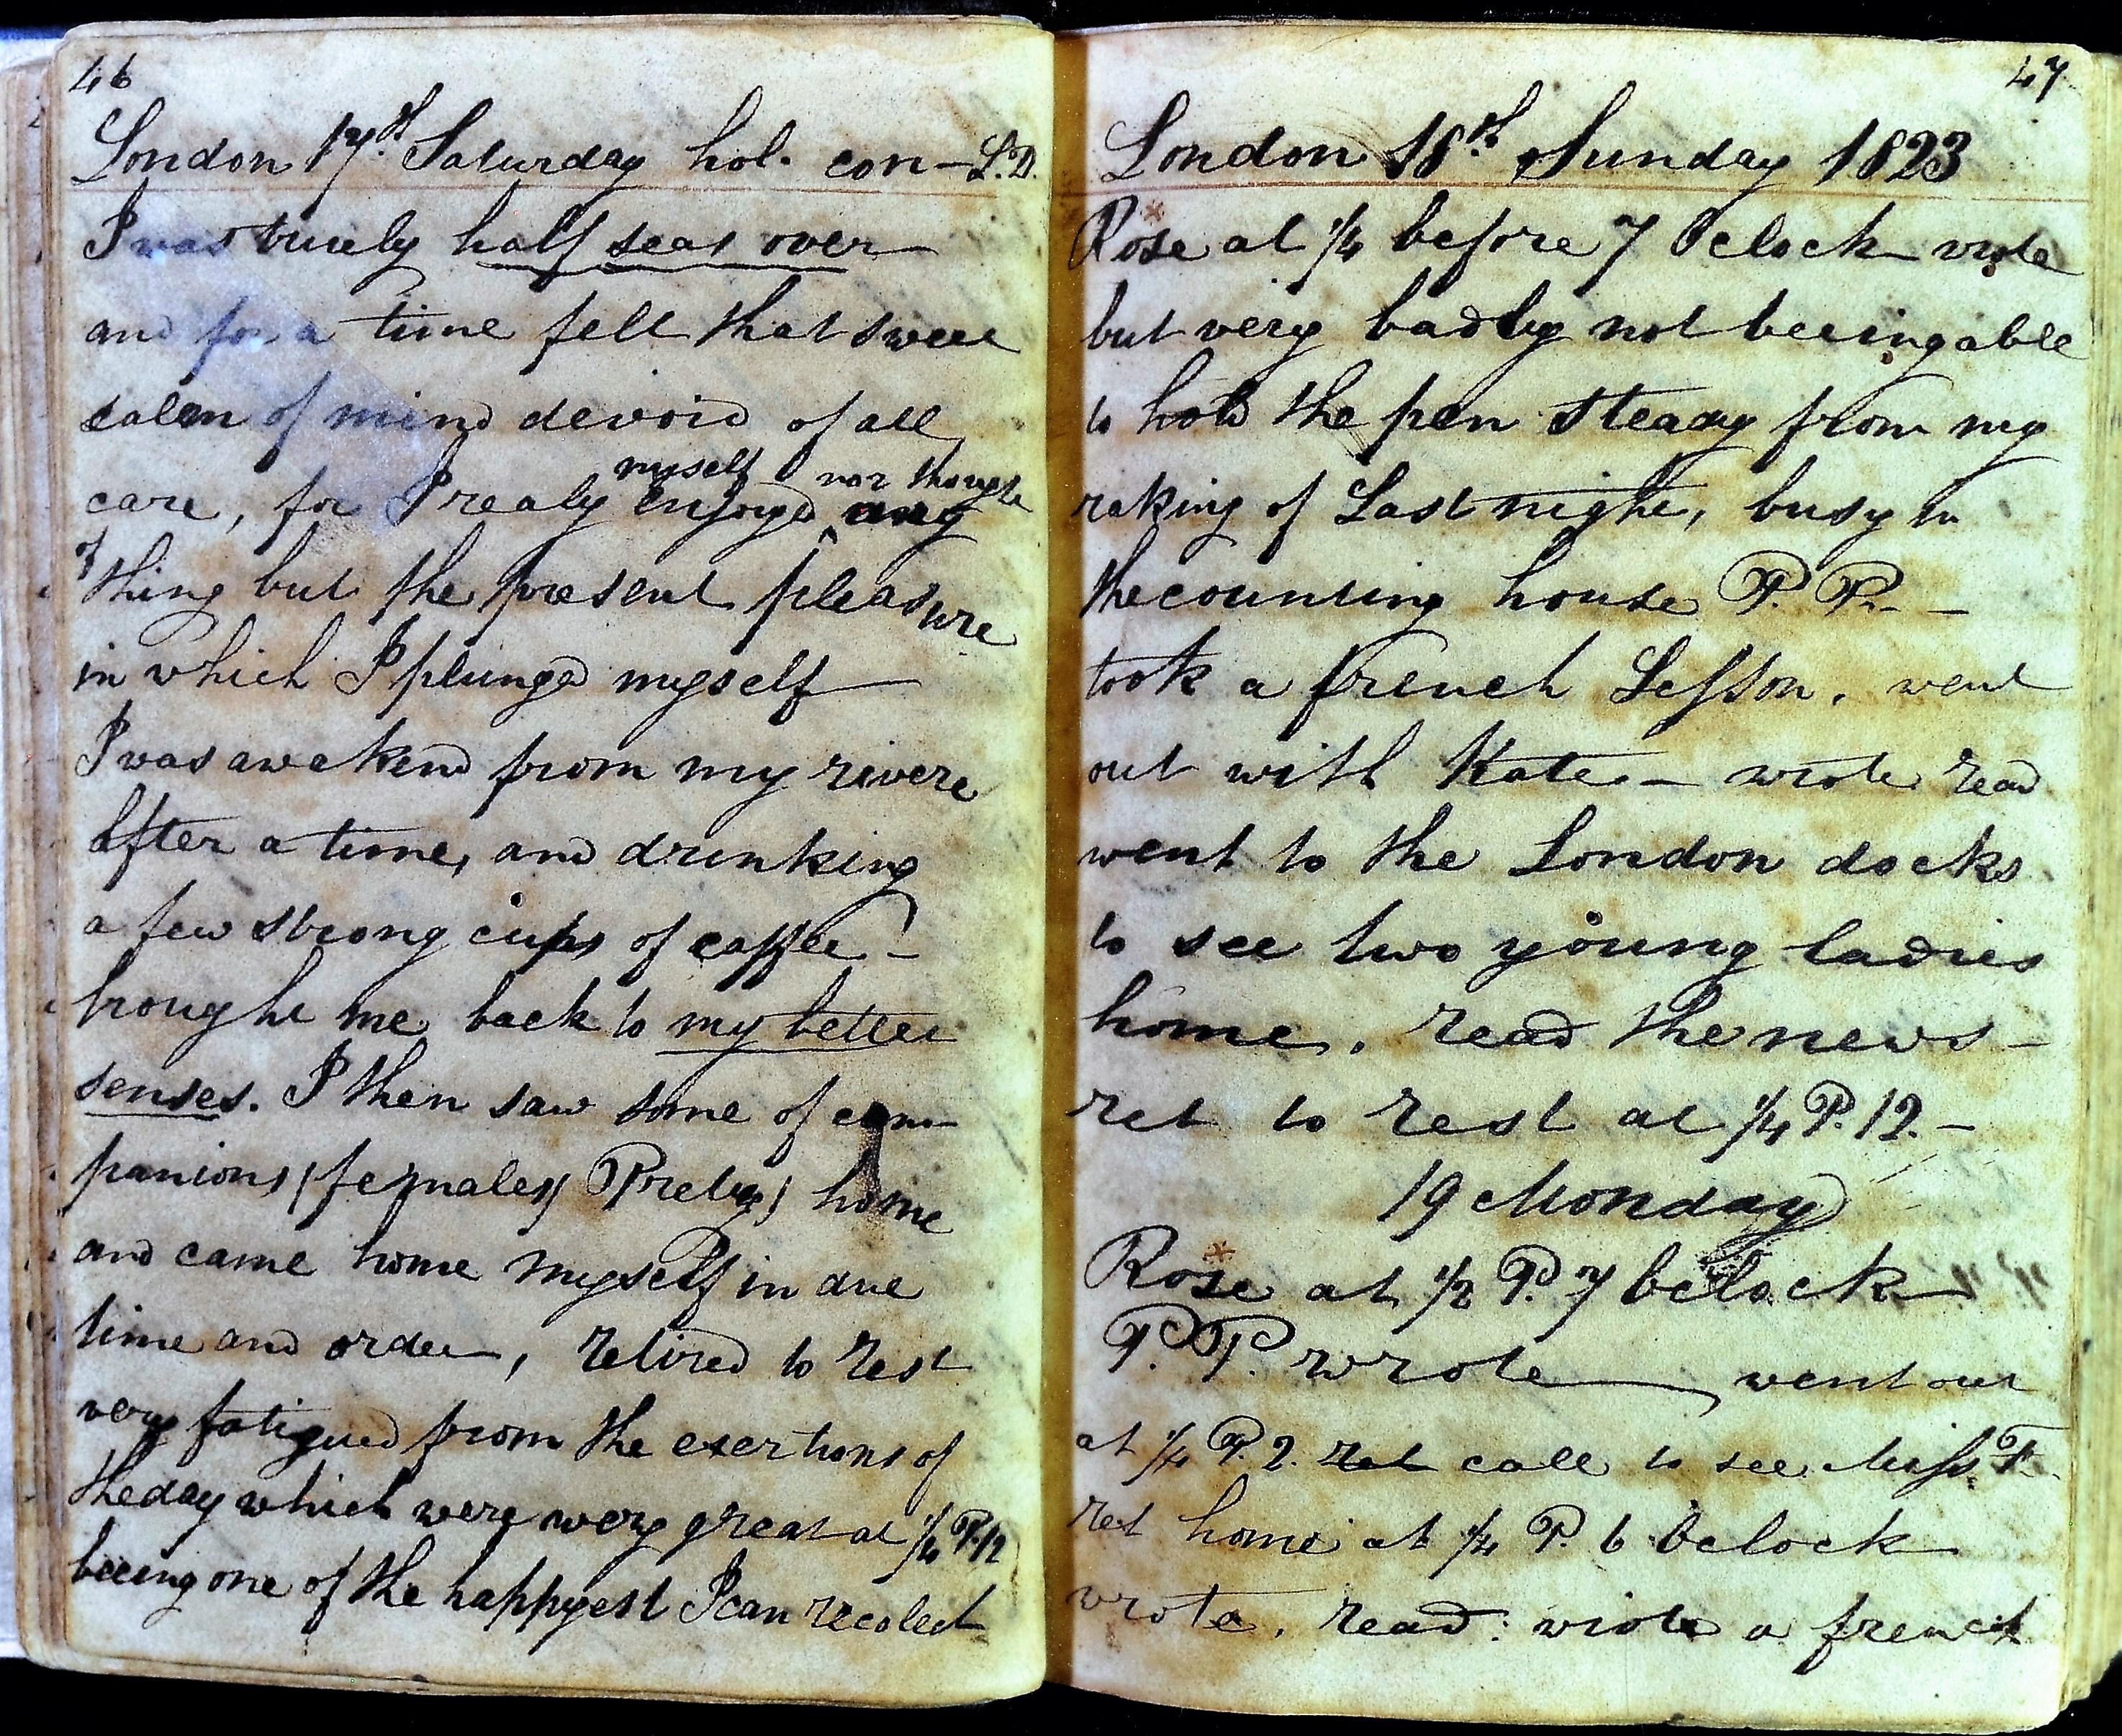 46
London 17.th Saturday hol. con – L.D.
I was truely half seas over
and for a time felt that sweet
calem of mind devoid of all
myself nor thought
care, for I realy enjoyed any
of
thing but the present pleasure
in which I plunged myself
I was awakend from my rivere
after a time, and drinking
a few strong cups of coffee –
brought me back to my better
senses. I then saw some of com-
panions (females) Prety) home
and came home myself in due
time and order, retired to rest
very fatigued from the exertions of
the day which were very great at 1/4 P. 12
beeing one of the happyest I can recolect
47
London 18.th Sunday 1823
Rose at 1/4 before 7 Oclock wrote
but very badly not beeing able
to hold the pen steady from my
raking of Last night, busy in
the counting house P. P. –
took a french Lesson. went
out with Kate – wrote read
went to the London docks
to see two young ladies
home. read the news –
ret to rest at 1/4 P. 12. –
19 Monday
Rose at 1/2 P. 7 oclock
P. P. wrote went out
at 1/4 P. 2. ret call to see Miss F.
ret home at 1/4 P. 6 oclock
wrote. read: wrote a french